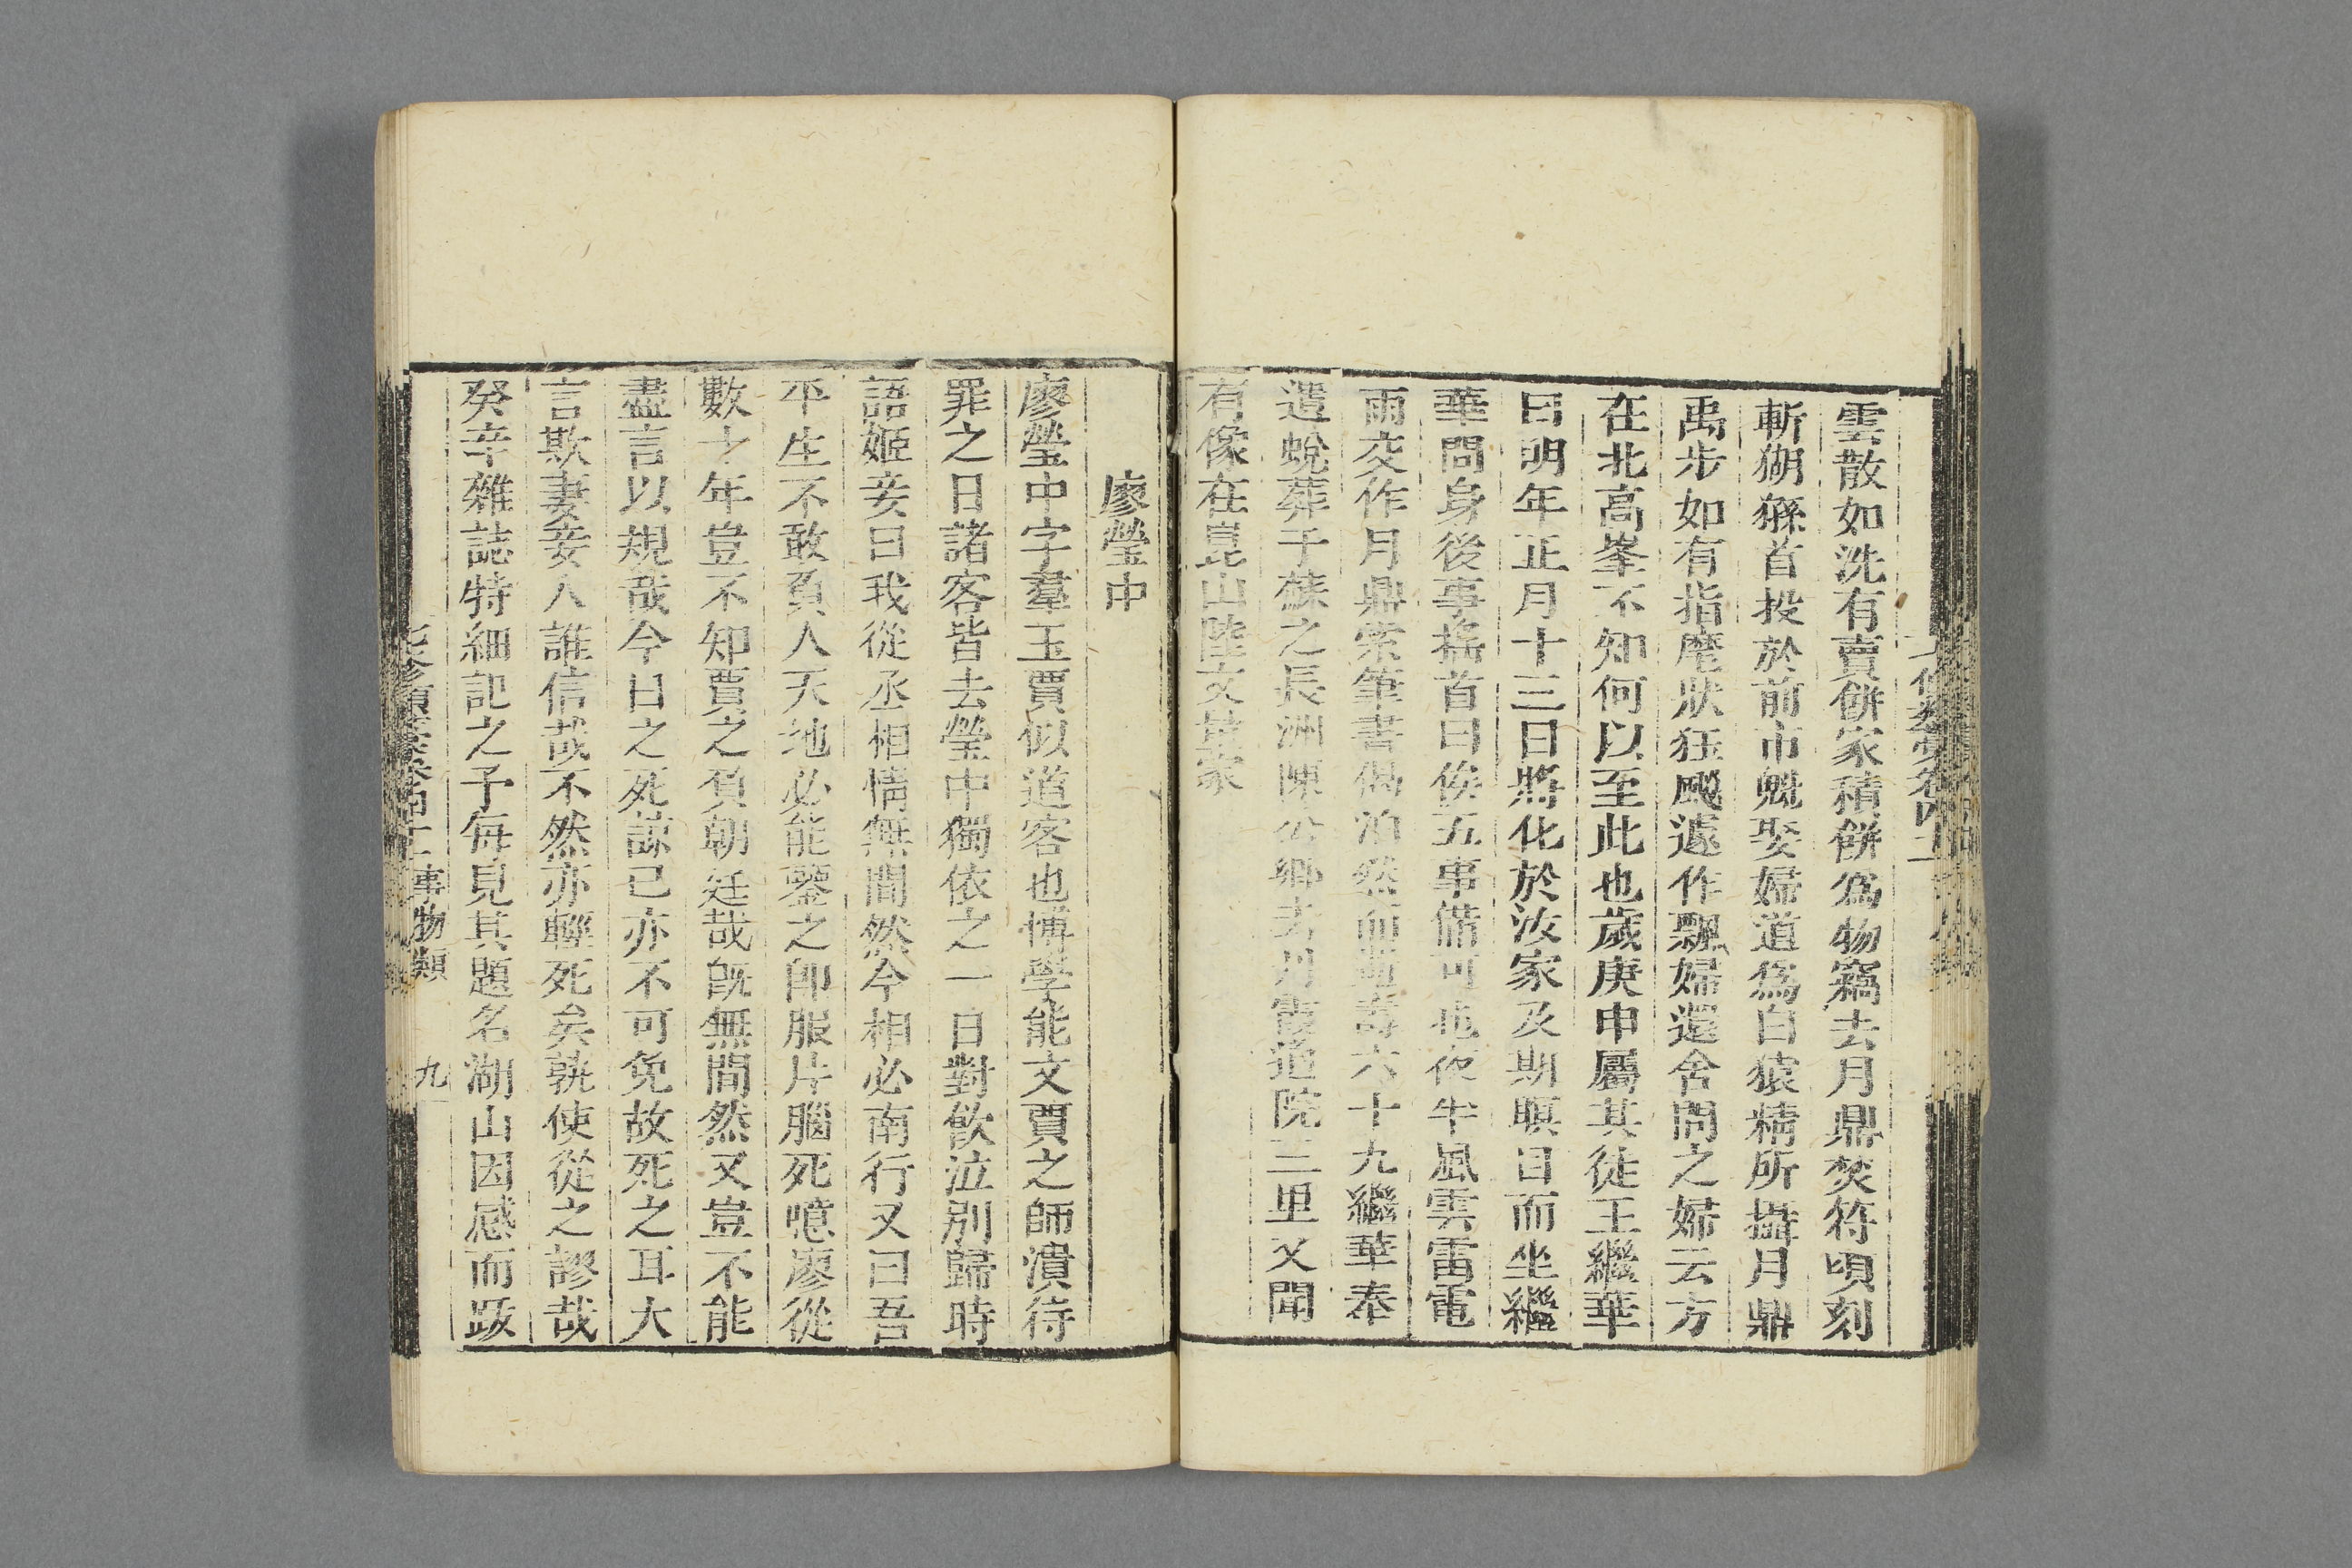 雲散如洗有賣餅家積餅爲物竊去月鼎焚符頃刻
斬猢猻首投於前市魁娶婦道爲白猿精所攝月鼎
禹步如有指麾狀狂飈遽作飄婦還舍問之婦云方
在北高峯不知何以至此也歲庚申屬其徒王繼華
曰明年正月十三日將化於汝家及期瞑目而坐繼
華問身後事搖首曰俟五事備可也夜半風雲雷電
雨交作月鼎索筆書偈泊然而逝壽六十九繼華奉
遺蛻葬于蘇之長洲陳公鄉去丹霞道院二里又聞
有像在崑山陸文量家
廖瑩中
廖瑩中字羣玉賈似道客也博學能文賈之師潰待
罪之日諸客皆去瑩中獨依之一日對飲泣別歸時
語姬妾曰我從丞相情無間然今相必南行又曰吾
平生不敢負人天地必能鑒之卽服片腦死噫廖從
數十年豈不知賈之負朝廷哉旣無間然又豈不能
盡言以規哉今日之死諫已亦不可免故死之耳大
言欺妻妾人誰信哉不然亦輕死矣孰使從之謬哉
癸辛雜誌特細記之予每見其題名湖山因感而跋
事物類 九